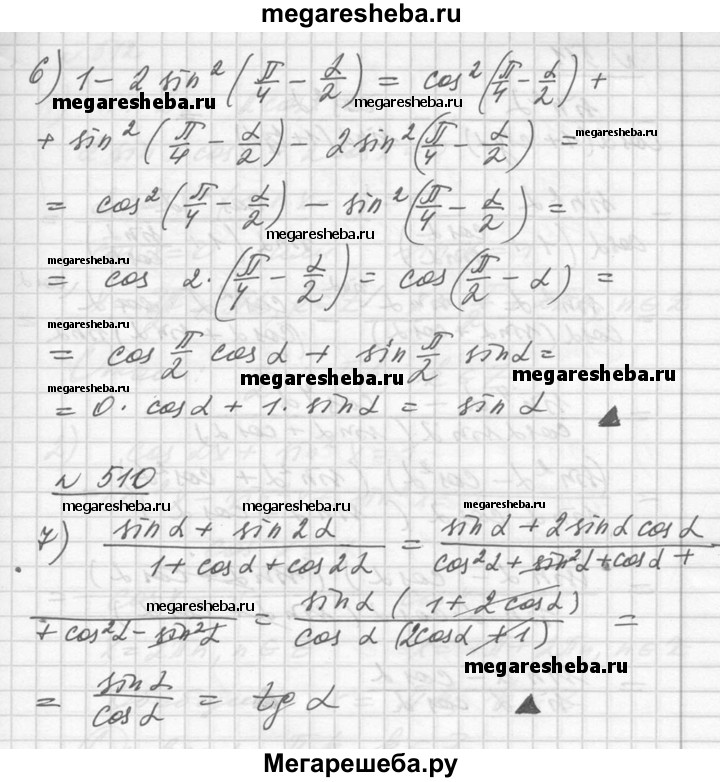 megaresheba.ru
6) 1 - 2 sin² (π/4 - α/2) = cos² (π/4 - α/2) +
megaresheba.ru megaresheba.ru
+ sin² (π/4 - α/2) - 2 sin² (π/4 - α/2) =
megaresheba.ru
= cos² (π/4 - α/2) - sin² (π/4 - α/2) =
megaresheba.ru
megaresheba.ru
= cos 2·(π/4 - α/2) = cos (π/2 - α) =
megaresheba.ru
= cos π/2 cos α + sin π/2 sin α =
megaresheba.ru megaresheba.ru
= 0 · cos α + 1 · sin α = sin α ▲
№ 510
megaresheba.ru megaresheba.ru
7) (sin α + sin 2α)/(1 + cos α + cos 2α) = (sin α + 2 sin α cos α)/(cos²α + sin²α + cos α +
megaresheba.ru
+ cos²α - sin²α) = (sin α (1 + 2 cos α))/(cos α (2cos α + 1)) =
megaresheba.ru
= sin α/cos α = tg α ▲
Мегарешеба.ру